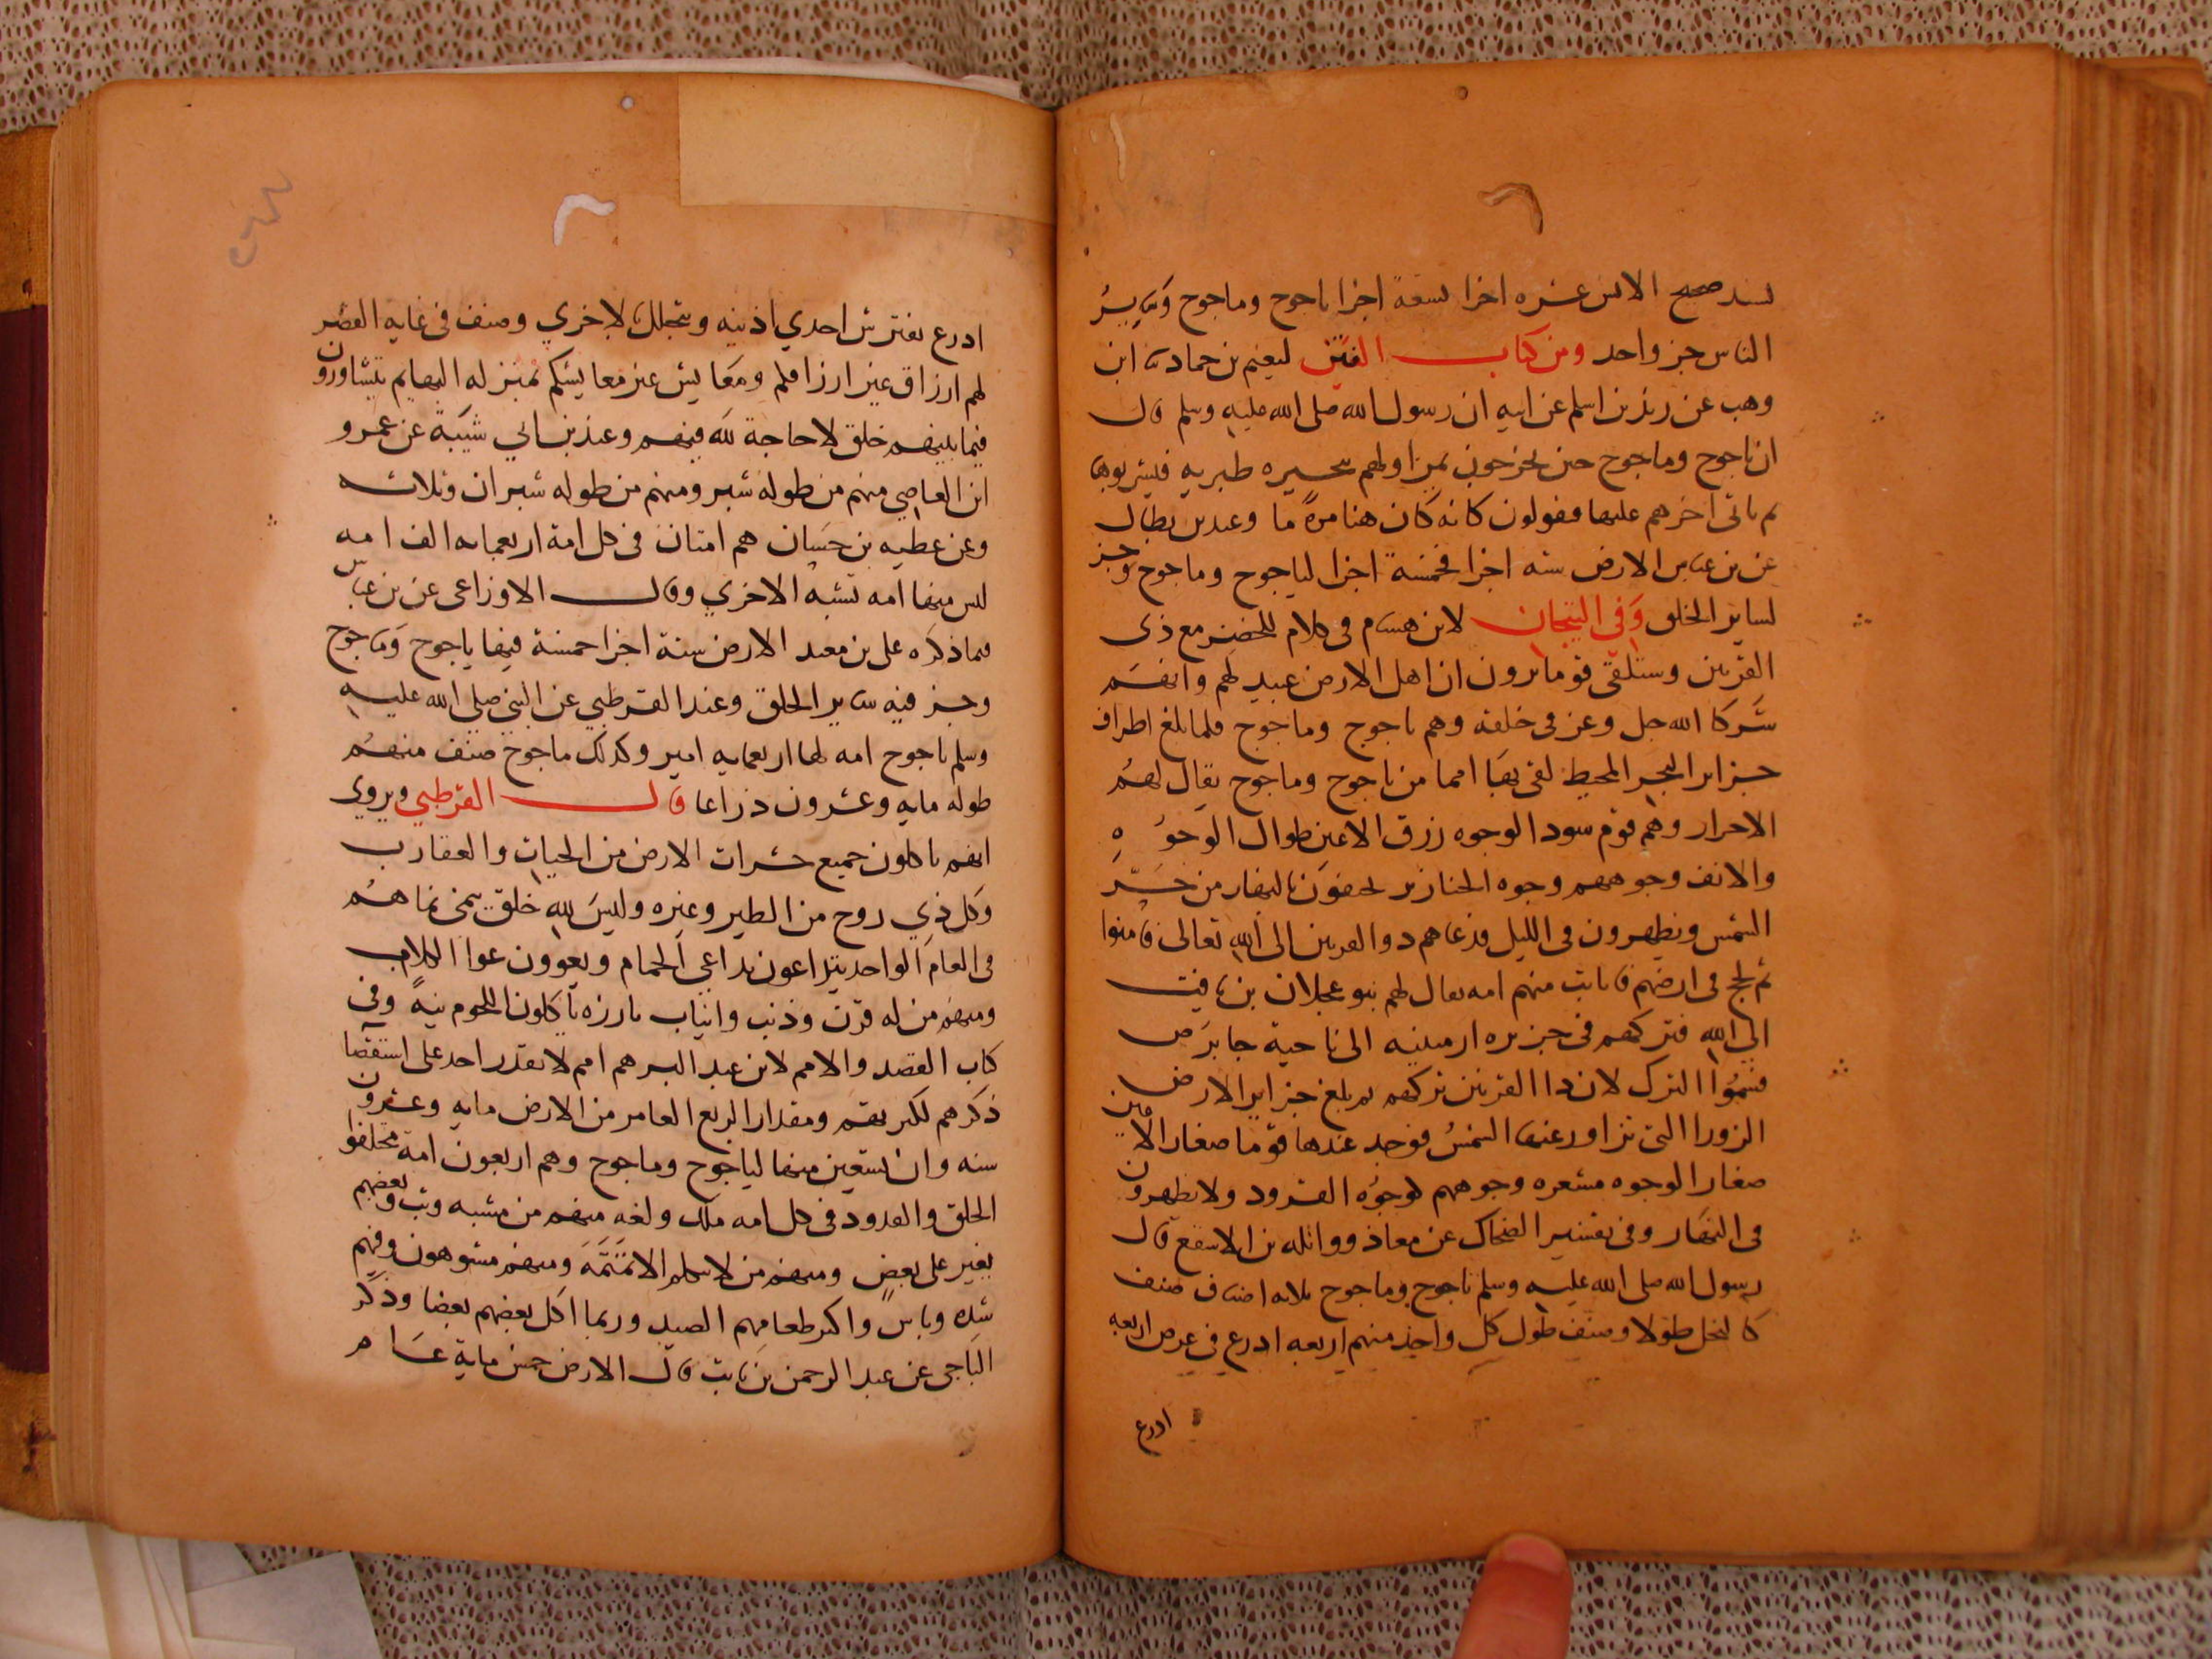 بسند صحيح الانس عشره اجزا تسعة اجزا ياجوج وماجوج وساير
الناس جز واحد ومن كتاب الفتن لنعيم بن حماد ابن
وهب عن زيد بن اسلم عن ابيه ان رسول الله صلى الله عليه وسلم قال
ان ياجوج وماجوج حين يخرجون يمر اولهم ببحيره طبريه فيشربوها
ثم ياتي اخرهم عليها فيقولون كانه كان هنا مرة ما وعند بن بطال
عن بن عباس الارض سته اجزا فخمسة اجزا لياجوج وماجوج وجز
لساير الخلق وفي التيجان لابن هشام في كلام للخضر مع ذي
القرنين وستلقى قوما يرون ان اهل الارض عبيد لهم وانهم
شركا الله جل وعز في خلقه وهم ياجوج وماجوج فلما بلغ اطراف
جزاير البحر المحيط لقي بها امما من ياجوج وماجوج يقال لهم
الاحرار وهم قوم سود الوجوه زرق الاعين طوال الوجوه
والانف وجوههم وجوه الخنازير يختفون بالنهار من حر
الشمس ويظهرون في الليل فدعاهم ذو القرنين الى الله تعالى فامنوا
ثم لج في ارضهم فانابت منهم امه يقال لهم بنو عجلان بن يافث
الى الله فتركهم في جزيره ارمينيه الى ناحية جابرص
فسموا الترك لان ذا القرنين تركهم ثم بلغ جزاير الارض
الزورا التي تزاور عنها الشمس فوجد عندها قوما صغار الاعين
صغار الوجوه مشعره وجوههم كوجوه القرود ولا يظهرون
في النهار وفي تفسير الضحاك عن معاذ وواثله بن الاسقع قال
رسول الله صلى الله عليه وسلم ياجوج وماجوج ثلاثه اصناف صنف
كالنخل طولا وصنف طول كل واحد منهم اربعه ادرع في عرض اربعه
ادرع
ادرع يفترش احدي اذنيه ويتجلل بالاخري وصنف في غايه القصر
لهم ارزاق غير ارزاقكم ومعايش غير معايشكم بمنزله البهايم يتشاورون
فيما بينهم خلق لا حاجة لله فيهم وعند بن ابي شيبة عن عمرو
ابن العاصي منهم من طوله شبر ومنهم من طوله شبران وثلاثه
وعن عطيه بن حسان هم امتان في كل امة اربعمايه الف امه
ليس منها امه تشبه الاخري وقال الاوزاعي عن بن عباس
فيما ذكره على بن معبد الارض ستة اجزا خمسة فيها ياجوج وماجوج
وجز فيه ساير الخلق وعند القرطبي عن النبي صلى الله عليه
وسلم ياجوج امه لها اربعمايه امير وكذلك ماجوج صنف منهم
طوله مايه وعشرون ذراعا قال القرطبي ويروى
انهم ياكلون جميع حشرات الارض من الحيات والعقارب
وكل ذي روح من الطير وغيره وليس لله خلق ينمى نماهم
في العام الواحد يتداعون تداعي الحمام ويعوون عوا الكلاب
ومنهم من له قرن وذنب وانياب بارزه ياكلون اللحوم نيه وفي
كتاب القصد والامم لابن عبد البر هم امم لا يقدر احد على استقصا
ذكرهم لكثرتهم ومقدار الربع العامر من الارض مايه وعشرون
سنه وان تسعين منها لياجوج وماجوج وهم اربعون امة مختلفوا
الخلق والقدود في كل امه ملك ولغه منهم من مشيه وثب وبعضهم
يغير على بعض ومنهم من لا يتكلم الا تمتمة ومنهم مشوهون وفيهم
شده وباس واكثر طعامهم الصيد وربما اكل بعضهم بعضا وذكر
الباجي عن عبد الرحمن بن ثابت قال الارض خمس ماية عام